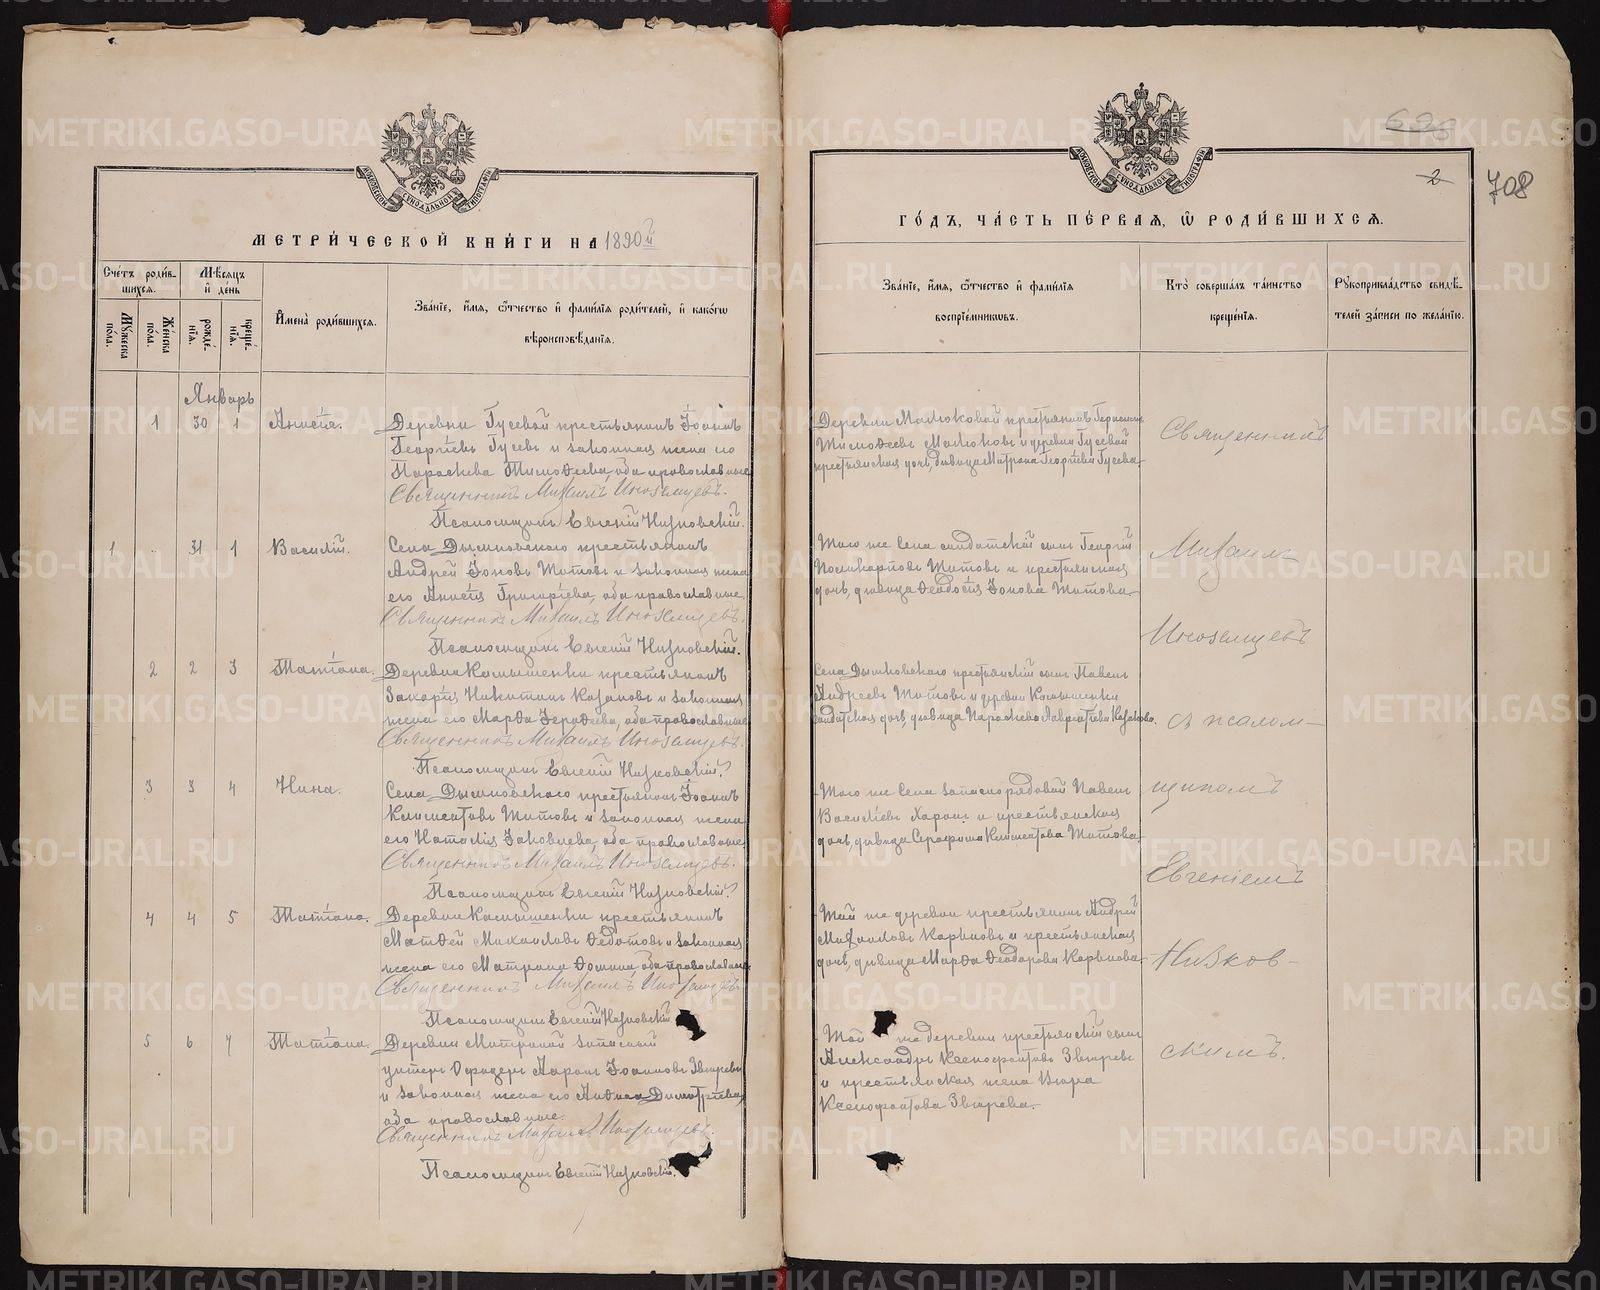 МЕТРИ́ЧЕСКОЙ КНИ́ГИ НА 1890й
Сче́тъ роди́в-
шихсѧ.
Мѣ́сяцъ
и҆ де́нь
Мꙋ́жеска
по́ла.
Же́нска
по́ла.
рожде́-
нїѧ.
креще́-
нїѧ.
И҆мена̀ роди́вшихсѧ.
Зва́нїе, и҆́мѧ, ѻ҆́тчество и҆ фамилїѧ роди́телей, и҆ како́гѡ
вѣроисповѣ́данїѧ.
Январь
1 30 1 Анисія. Деревни Гусевой крестьянинъ Іоаннъ
Георгіевъ Гусевъ и законная жена его
Параскева Тимоѳеева, оба православные
Священникъ Михаилъ Иноземцевъ.
Псаломщикъ Евгеній Низковскій.
1 31 1 Василій. Села Дымковскаго крестьянинъ
Андрей Іоновъ Титовъ и законная жена
его Анисія Григоріева, оба православные.
Священникъ Михаилъ Иноземцевъ.
Псаломщикъ Евгеній Низковскій.
2 2 3 Татіана. Деревни Камышенки крестьянинъ
Захарія Никитинъ Казаковъ и законная
жена его Марѳа, оба православные
Священникъ Михаилъ Иноземцевъ.
Псаломщикъ Евгеній Низковскій
3 3 4 Нина. Села Дымковскаго крестьянинъ Іоаннъ
Климентовъ Титовъ и законная жена
его Наталія Іаковлева, оба православные.
Священникъ Михаилъ Иноземцевъ.
Псаломщикъ Евгеній Низковскій
4 4 5 Татіана. Деревни Камышенки крестьянинъ
Матѳей Михаиловъ Ѳедотовъ и законная
жена его Матрона Ѳомина, оба православные.
Священникъ Михаилъ Иноземцевъ
Псаломщикъ Евгеній Низковскій
5 6 7 Татіана. Деревни запасный
унтеръ Офицеръ Ааронъ Іоанновъ Звѣревъ
и законная жена его Димитріева,
оба православные.
Священникъ Михаилъ Иноземцевъ.
Псаломщикъ Евгеній Низковскій.
696
2
708
ГО́ДЪ, ЧА́СТЬ ПЕ́РВАЯ, Ѡ҆ РОДИ́ВШИХСѦ.
Зва́нїе, и҆́мѧ, ѻ҆́тчество и҆ фамилїѧ
воспрїе́мникѡвъ.
Кто̀ соверша́лъ та́инство
креще́нїѧ.
Рꙋкоприкла́дство свидѣ́-
телей за́писи по жела́нїю.
Деревни Малюковой крестьянинъ
Тимоѳеевъ Малюковъ и деревни Гусевой
крестьянская дочь, дѣвица Матрона Георгіева Гусева.
Того же села солдатскій сынъ Георгій
Поликарповъ Титовъ и крестьянская
дочь, дѣвица Ѳеодосія Іонова Титова.
Села Дымковскаго крестьянскій сынъ Павелъ
Андреевъ Титовъ и деревни Камышенки
солдатская дочь, дѣвица Параскева Казакова.
Того же села запасной рядовой Павелъ
Василіевъ и крестьянская
дочь, дѣвица Серафима Климентова Титова.
Той же деревни крестьянинъ Андрей
Михаиловъ Карповъ и крестьянская
дочь, дѣвица Марѳа Ѳеодорова Карпова.
Той же деревни крестьянскій сынъ
Александръ Ксенофонтовъ Звѣревъ
и крестьянская жена
Ксенофонтова Звѣрева.
Священникъ
Михаилъ
Иноземцевъ
съ псалом-
щикомъ
Евгеніемъ
Низков-
скимъ.
METRIKI.GASO-URAL.RU